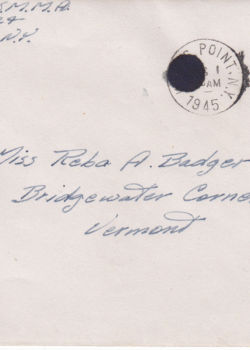 S.M.M.A.
24
N.Y.
POINT, N.Y.
1
AM
1945
Miss Reba A. Badger
Bridgewater Corne
Vermont